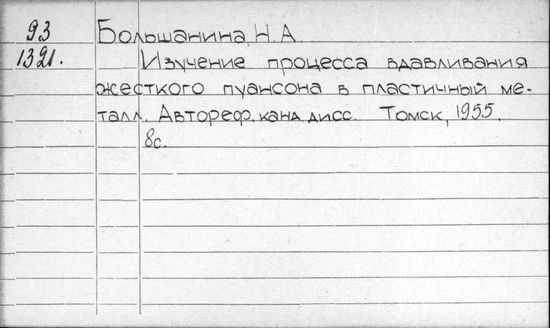 93 Большанина, Н.А.
1321. Изучение процесса вдавливания
жесткого пуансона в пластичный ме-
талл. Автореф. канд. дисс. Томск, 1955.
8с.